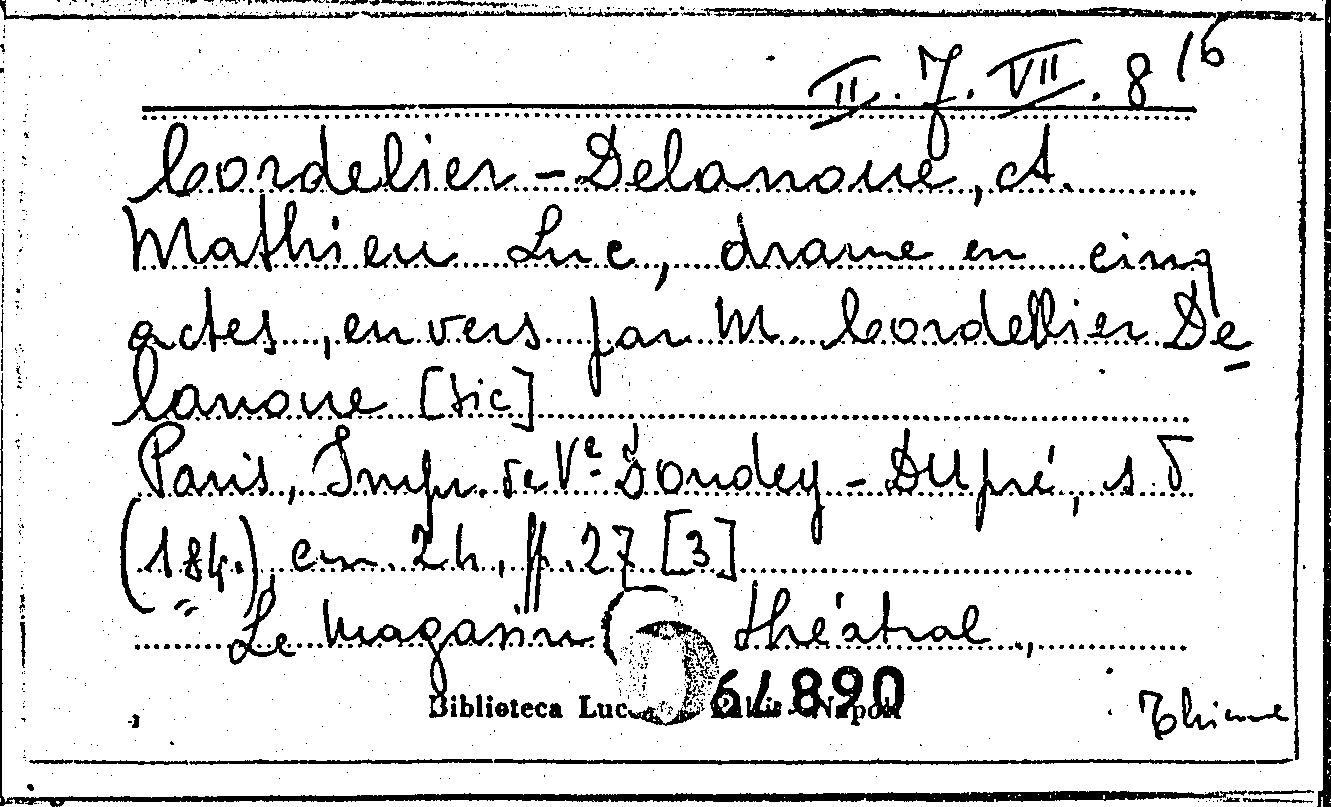 II. J. VII. 8 16
Cordelier-Delanoue, A.
Mathieu Luc, drame en cinq
actes, en vers par M. Cordellier De
lanoue [sic]
Paris, Impr. de Ve Dondey-Dupré, s. d
(184.), cm. 24, pp. 27 [3]
Le magasin théatral,
64890
Biblioteca Luc Napoli
Thieme